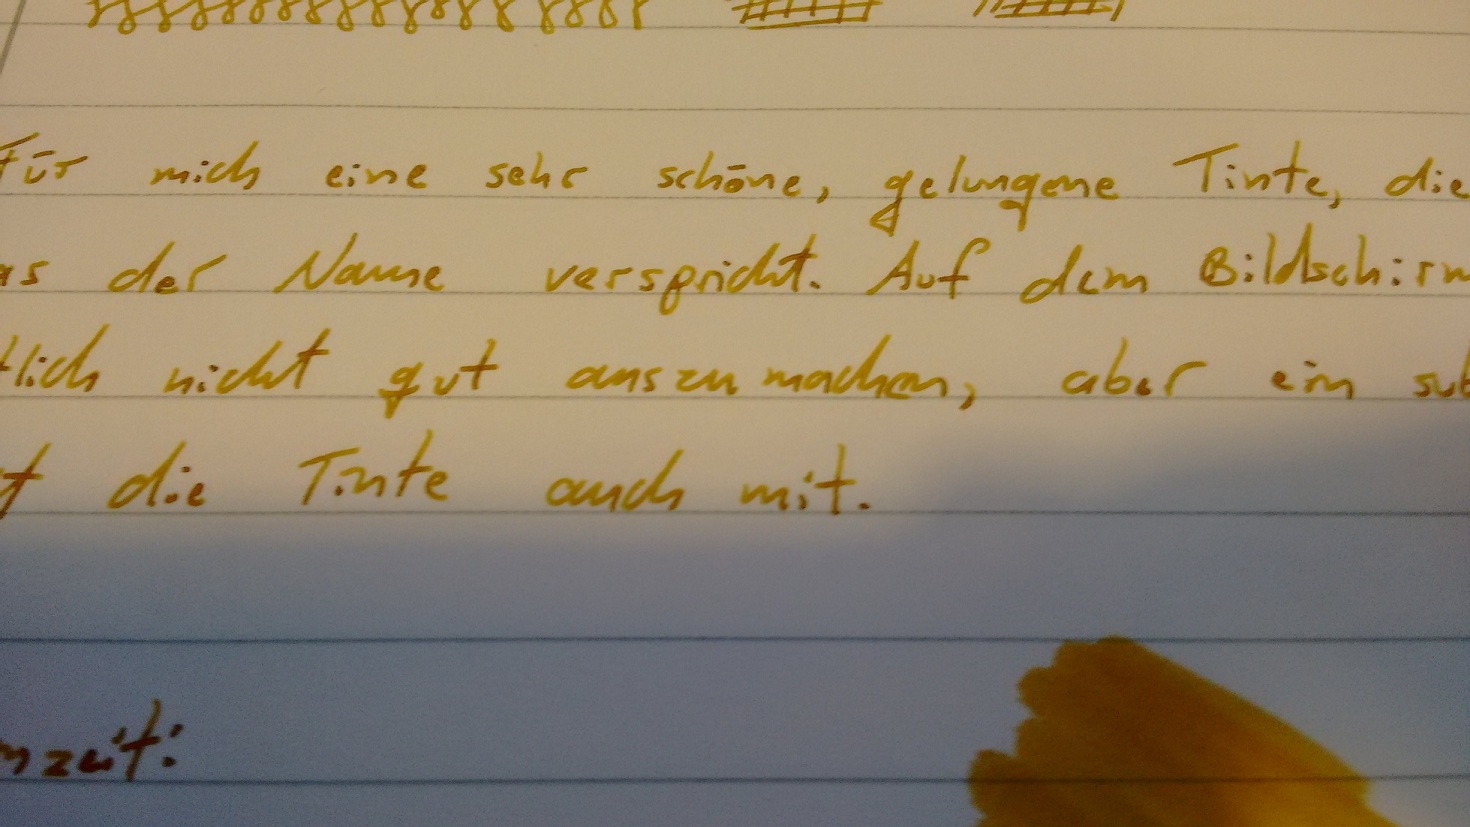 Für mich eine sehr schöne, gelungene Tinte, die
as der Name verspricht. Auf dem Bildschirm
tlich nicht gut auszumachen, aber ein sub
t die Tinte auch mit.
nzeit: